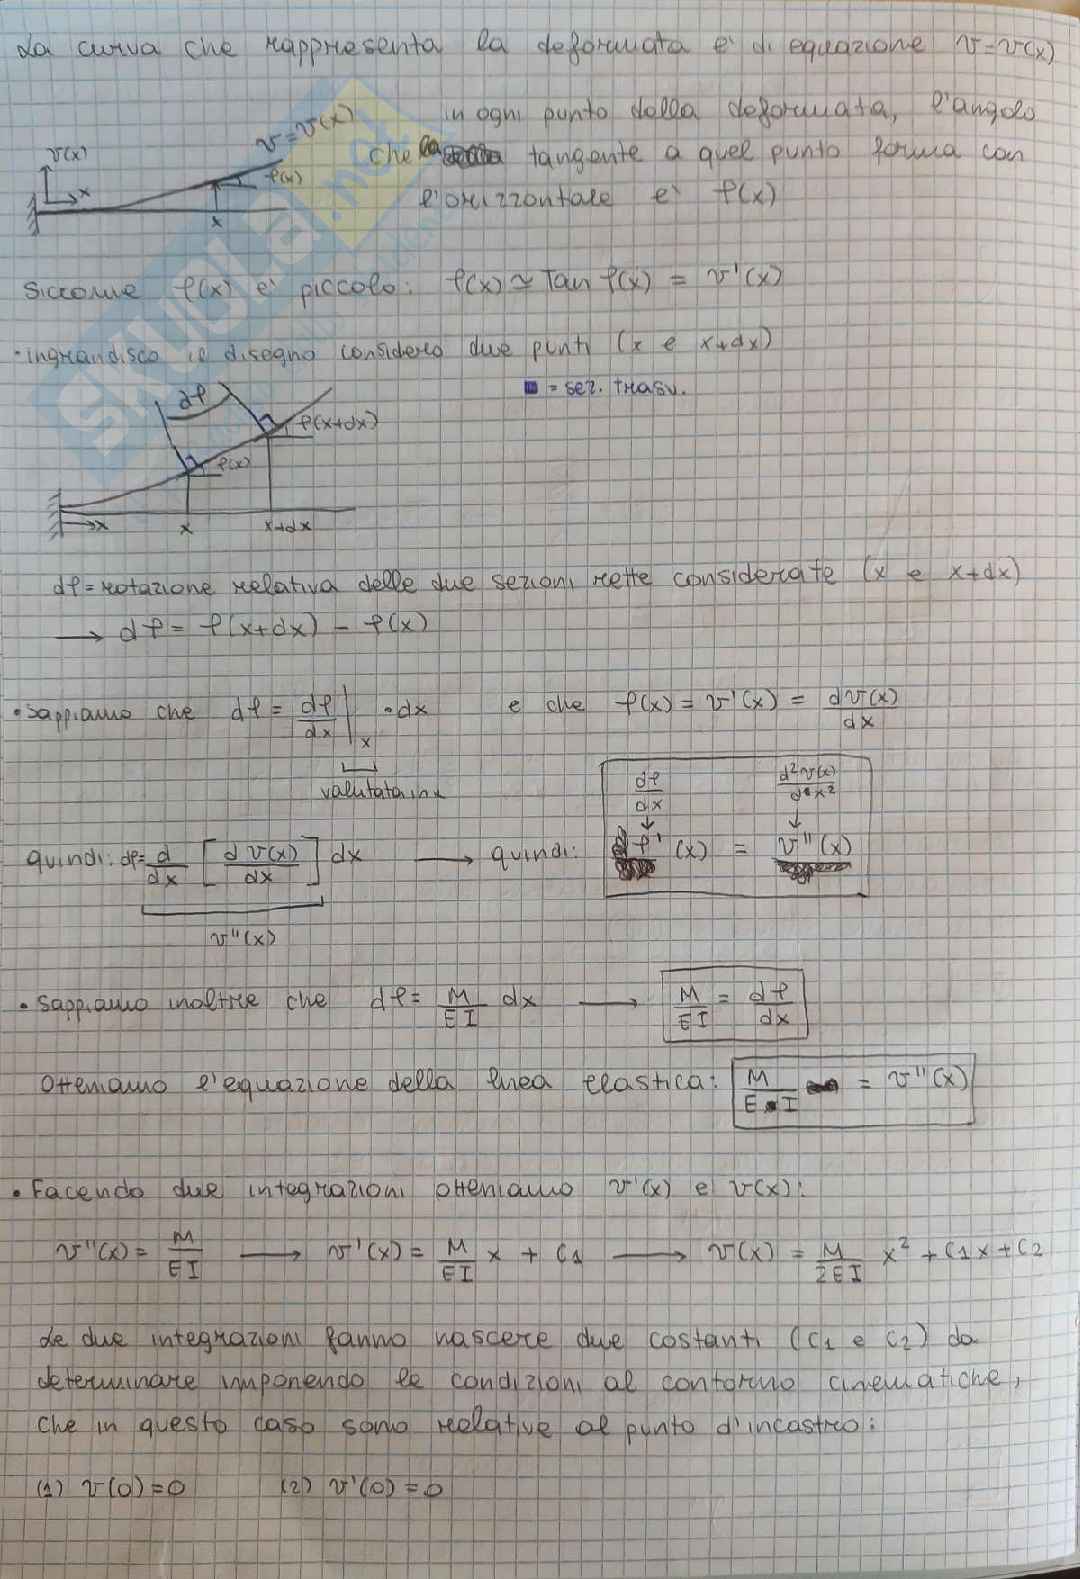 La curva che rappresenta la deformata e' di equazione v=v(x)
v(x)
x
v=v(x)
φ(x)
x
in ogni punto della deformata, l'angolo
che la tangente a quel punto forma con
l'orizzontale e' φ(x)
Siccome φ(x) e' piccolo: φ(x) ≃ Tan φ(x) = v'(x)
• ingrandisco il disegno considero due punti (x e x+dx)
= sez. trasv.
dφ
φ(x+dx)
φ(x)
x
x
x+dx
dφ = rotazione relativa delle due sezioni rette considerate (x e x+dx)
→ dφ = φ(x+dx) - φ(x)
• sappiamo che dφ = dφ/dx |x · dx e che φ(x) = v'(x) = dv(x)/dx
valutata in x
dφ/dx d²v(x)/dx²
↓ ↓
quindi: dφ= d/dx [dv(x)/dx] dx → quindi: φ'(x) = v''(x)
v''(x)
• sappiamo inoltre che dφ = M/EI dx → M/EI = dφ/dx
Otteniamo l'equazione della linea elastica: M/E·I = v''(x)
• Facendo due integrazioni otteniamo v'(x) e v(x):
v''(x) = M/EI → v'(x) = M/EI x + C1 → v(x) = M/2EI x² + C1x + C2
Le due integrazioni fanno nascere due costanti (C1 e C2) da
determinare imponendo le condizioni al contorno cinematiche,
che in questo caso sono relative al punto d'incastro:
(1) v(0)=0 (2) v'(0)=0
skuola.net